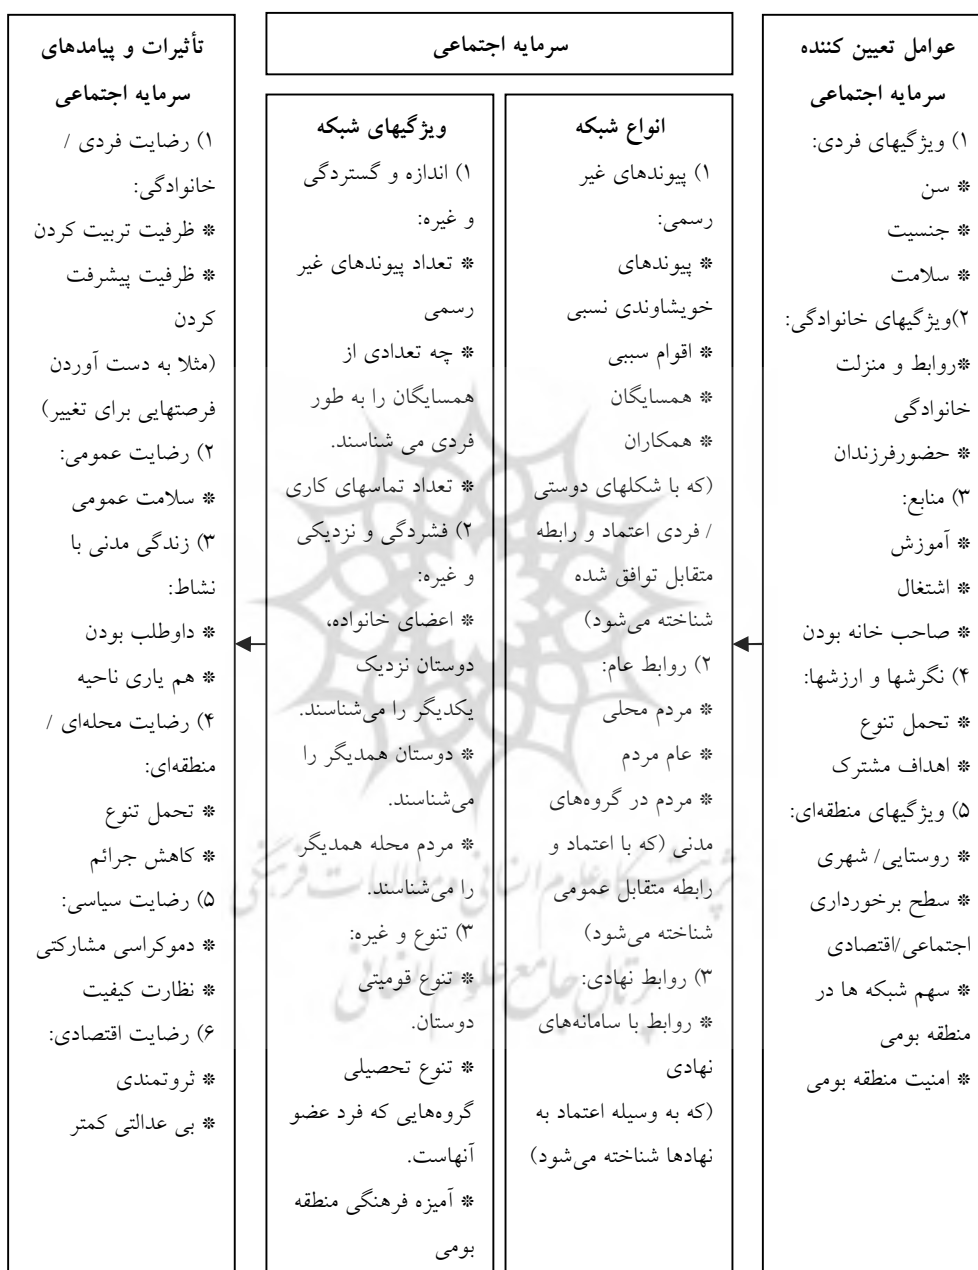 عوامل تعیین کننده
سرمایه اجتماعی
۱) ویژگیهای فردی:
* سن
* جنسیت
* سلامت
۲)ویژگیهای خانوادگی:
*روابط و منزلت
خانوادگی
* حضورفرزندان
۳) منابع:
* آموزش
* اشتغال
* صاحب خانه بودن
۴) نگرشها و ارزشها:
* تحمل تنوع
* اهداف مشترک
۵) ویژگیهای منطقه‌ای:
* روستایی/ شهری
* سطح برخورداری
اجتماعی/اقتصادی
* سهم شبکه ها در
منطقه بومی
* امنیت منطقه بومی
سرمایه اجتماعی
انواع شبکه
۱) پیوندهای غیر
رسمی:
* پیوندهای
خویشاوندی نسبی
* اقوام سببی
* همسایگان
* همکاران
(که با شکلهای دوستی
/ فردی اعتماد و رابطه
متقابل توافق شده
شناخته می‌شود)
۲) روابط عام:
* مردم محلی
* عام مردم
* مردم در گروه‌های
مدنی (که با اعتماد و
رابطه متقابل عمومی
شناخته می‌شود)
۳) روابط نهادی:
* روابط با سامانه‌های
نهادی
(که به وسیله اعتماد به
نهادها شناخته می‌شود)
ویژگیهای شبکه
۱) اندازه و گستردگی
و غیره:
* تعداد پیوندهای غیر
رسمی
* چه تعدادی از
همسایگان را به طور
فردی می شناسند.
* تعداد تماسهای کاری
۲) فشردگی و نزدیکی
و غیره:
* اعضای خانواده،
دوستان نزدیک
یکدیگر را می‌شناسند.
* دوستان همدیگر را
می‌شناسند.
* مردم محله همدیگر
را می‌شناسند.
۳) تنوع و غیره:
* تنوع قومیتی
دوستان.
* تنوع تحصیلی
گروه‌هایی که فرد عضو
آنهاست.
* آمیزه فرهنگی منطقه
بومی
تأثیرات و پیامدهای
سرمایه اجتماعی
۱) رضایت فردی /
خانوادگی:
* ظرفیت تربیت کردن
* ظرفیت پیشرفت
کردن
(مثلا به دست آوردن
فرصتهایی برای تغییر)
۲) رضایت عمومی:
* سلامت عمومی
۳) زندگی مدنی با
نشاط:
* داوطلب بودن
* هم یاری ناحیه
۴) رضایت محله‌ای /
منطقه‌ای:
* تحمل تنوع
* کاهش جرائم
۵) رضایت سیاسی:
* دموکراسی مشارکتی
* نظارت کیفیت
۶) رضایت اقتصادی:
* ثروتمندی
* بی عدالتی کمتر
پژوهشگاه علوم انسانی و مطالعات فرهنگی
پرتال جامع علوم انسانی